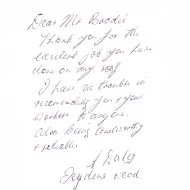 Dear Mr Brodie
Thank you for the
excellent job you have
done on my roof
I have no trouble in
recommending you & your
workers to anyone.
Also being trustworthy
& reliable.
Daley
wood